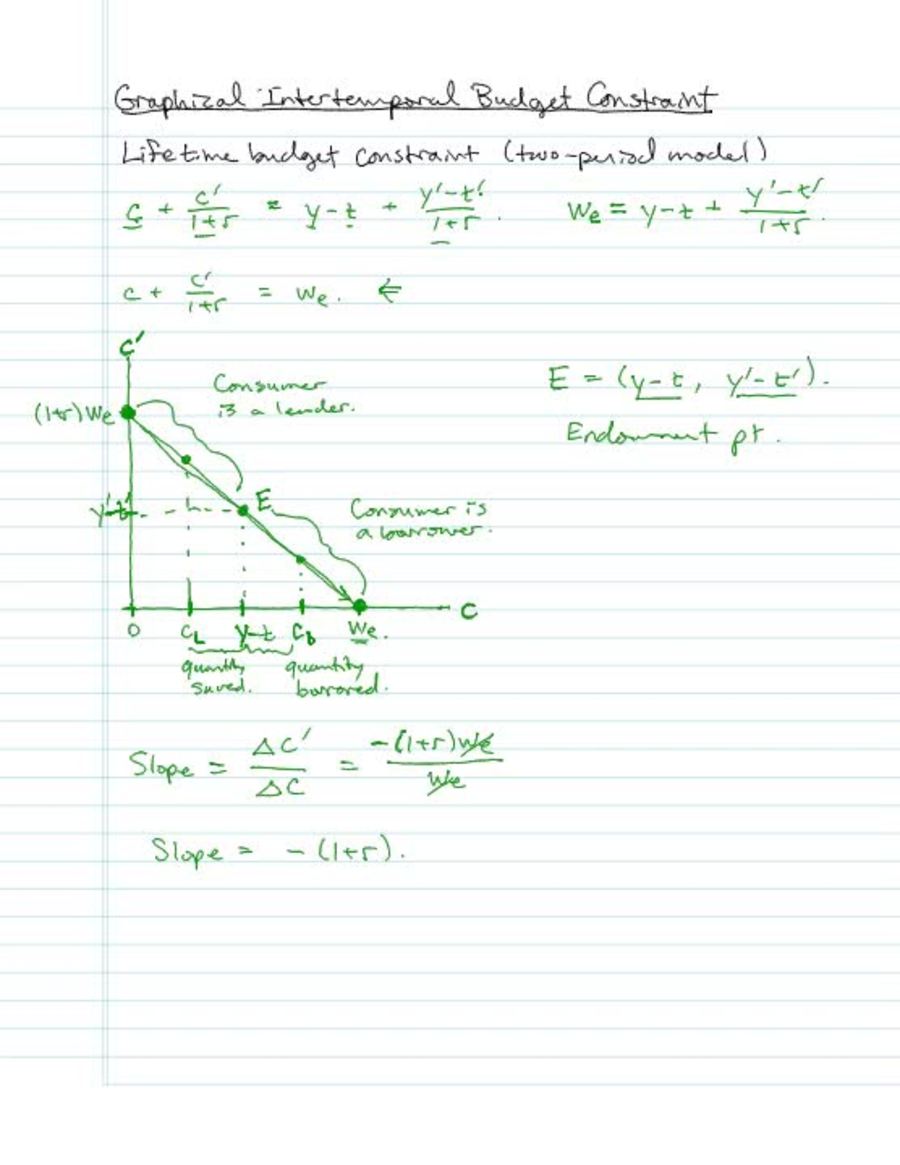 Graphical Intertemporal Budget Constraint
Lifetime budget constraint (two-period model)
c + c'/1+r = y-t + y'-t'/1+r. We = y-t + y'-t'/1+r.
c + c'/1+r = We. ⇐
c'
Consumer
is a lender.
(1+r)We
E = (y-t, y'-t').
Endowment pt.
E
y'-t'
Consumer is
a borrower.
c
0 CL y-t Cb We.
quantity saved.
quantity borrored.
Slope = ΔC'/ΔC = -(1+r)We/We
Slope = -(1+r).